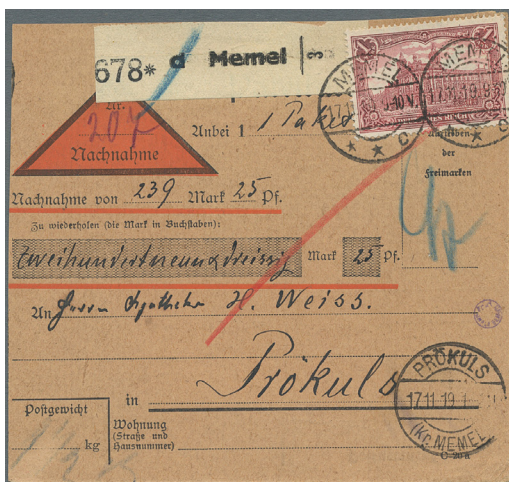 678* d Memel 3
1
MEMEL
17.11.19. 9-10 V.
* * c
MEMEL
Nr.
207
Nachnahme
Anbei 1 1 Paket
der
Freimarken
Nachnahme von 239 Mark 25 Pf.
Zu wiederholen (die Mark in Buchstaben):
Zweihundertneun & dreissig Mark 25 Pf.
An Herrn Apotheker H. Weiss.
Prökuls
in
PRÖKULS
17.11.19.
(Kr. MEMEL)
Postgewicht
kg
Wohnung
(Straße und
Hausnummer)
C. 20a